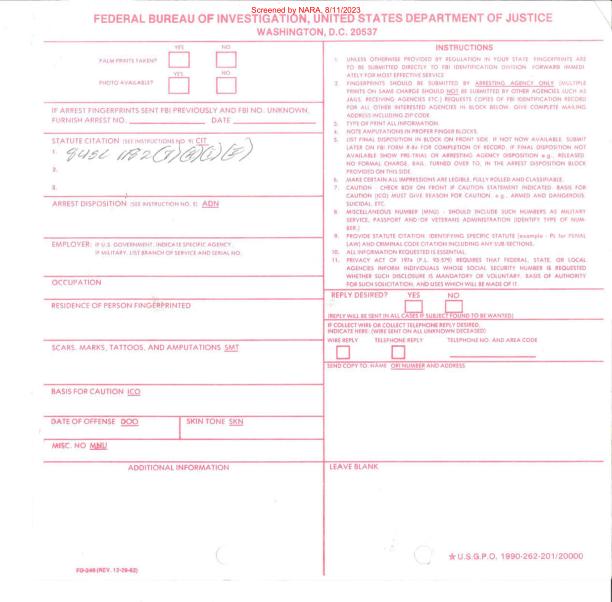 Screened by NARA, 8/11/2023
FEDERAL BUREAU OF INVESTIGATION, UNITED STATES DEPARTMENT OF JUSTICE
WASHINGTON, D.C. 20537
YES NO
PALM PRINTS TAKEN?
YES NO
PHOTO AVAILABLE?
IF ARREST FINGERPRINTS SENT FBI PREVIOUSLY AND FBI NO. UNKNOWN,
FURNISH ARREST NO. DATE
STATUTE CITATION (SEE INSTRUCTION NO. 9) CIT
1. 8USC 1182
2.
3.
ARREST DISPOSITION (SEE INSTRUCTION NO. 5) ADN
EMPLOYER: IF U.S. GOVERNMENT, INDICATE SPECIFIC AGENCY.
IF MILITARY, LIST BRANCH OF SERVICE AND SERIAL NO.
OCCUPATION
RESIDENCE OF PERSON FINGERPRINTED
SCARS, MARKS, TATTOOS, AND AMPUTATIONS SMT
BASIS FOR CAUTION ICO
DATE OF OFFENSE DOO SKIN TONE SKN
MISC. NO MNU
ADDITIONAL INFORMATION
FD-249 (REV. 12-29-82)
INSTRUCTIONS
1. UNLESS OTHERWISE PROVIDED BY REGULATION IN YOUR STATE, FINGERPRINTS ARE
TO BE SUBMITTED DIRECTLY TO FBI IDENTIFICATION DIVISION. FORWARD IMMEDI-
ATELY FOR MOST EFFECTIVE SERVICE
2. FINGERPRINTS SHOULD BE SUBMITTED BY ARRESTING AGENCY ONLY (MULTIPLE
PRINTS ON SAME CHARGE SHOULD NOT BE SUBMITTED BY OTHER AGENCIES SUCH AS
JAILS, RECEIVING AGENCIES ETC.) REQUESTS COPIES OF FBI IDENTIFICATION RECORD
FOR ALL OTHER INTERESTED AGENCIES IN BLOCK BELOW. GIVE COMPLETE MAILING
ADDRESS INCLUDING ZIP CODE.
3. TYPE OR PRINT ALL INFORMATION.
4. NOTE AMPUTATIONS IN PROPER FINGER BLOCKS.
5. LIST FINAL DISPOSITION IN BLOCK ON FRONT SIDE. IF NOT NOW AVAILABLE, SUBMIT
LATER ON FBI FORM R-84 FOR COMPLETION OF RECORD. IF FINAL DISPOSITION NOT
AVAILABLE SHOW PRE-TRIAL OR ARRESTING AGENCY DISPOSITION e.g., RELEASED,
NO FORMAL CHARGE, BAIL, TURNED OVER TO, IN THE ARREST DISPOSITION BLOCK
PROVIDED ON THIS SIDE.
6. MAKE CERTAIN ALL IMPRESSIONS ARE LEGIBLE, FULLY ROLLED AND CLASSIFIABLE.
7. CAUTION - CHECK BOX ON FRONT IF CAUTION STATEMENT INDICATED. BASIS FOR
CAUTION (ICO) MUST GIVE REASON FOR CAUTION, e.g., ARMED AND DANGEROUS,
SUICIDAL, ETC.
8. MISCELLANEOUS NUMBER (MNU) - SHOULD INCLUDE SUCH NUMBERS AS MILITARY
SERVICE, PASSPORT AND/OR VETERANS ADMINISTRATION (IDENTIFY TYPE OF NUM-
BER.)
9. PROVIDE STATUTE CITATION, IDENTIFYING SPECIFIC STATUTE (example - PL for PENAL
LAW) AND CRIMINAL CODE CITATION INCLUDING ANY SUB-SECTIONS.
10. ALL INFORMATION REQUESTED IS ESSENTIAL.
11. PRIVACY ACT OF 1974 (P.L. 93-579) REQUIRES THAT FEDERAL, STATE, OR LOCAL
AGENCIES INFORM INDIVIDUALS WHOSE SOCIAL SECURITY NUMBER IS REQUESTED
WHETHER SUCH DISCLOSURE IS MANDATORY OR VOLUNTARY, BASIS OF AUTHORITY
FOR SUCH SOLICITATION, AND USES WHICH WILL BE MADE OF IT.
REPLY DESIRED? YES NO
(REPLY WILL BE SENT IN ALL CASES IF SUBJECT FOUND TO BE WANTED)
IF COLLECT WIRE OR COLLECT TELEPHONE REPLY DESIRED,
INDICATE HERE: (WIRE SENT ON ALL UNKNOWN DECEASED)
WIRE REPLY TELEPHONE REPLY TELEPHONE NO. AND AREA CODE
SEND COPY TO: NAME ORI NUMBER AND ADDRESS
LEAVE BLANK
★ U.S.G.P.O. 1990-262-201/20000